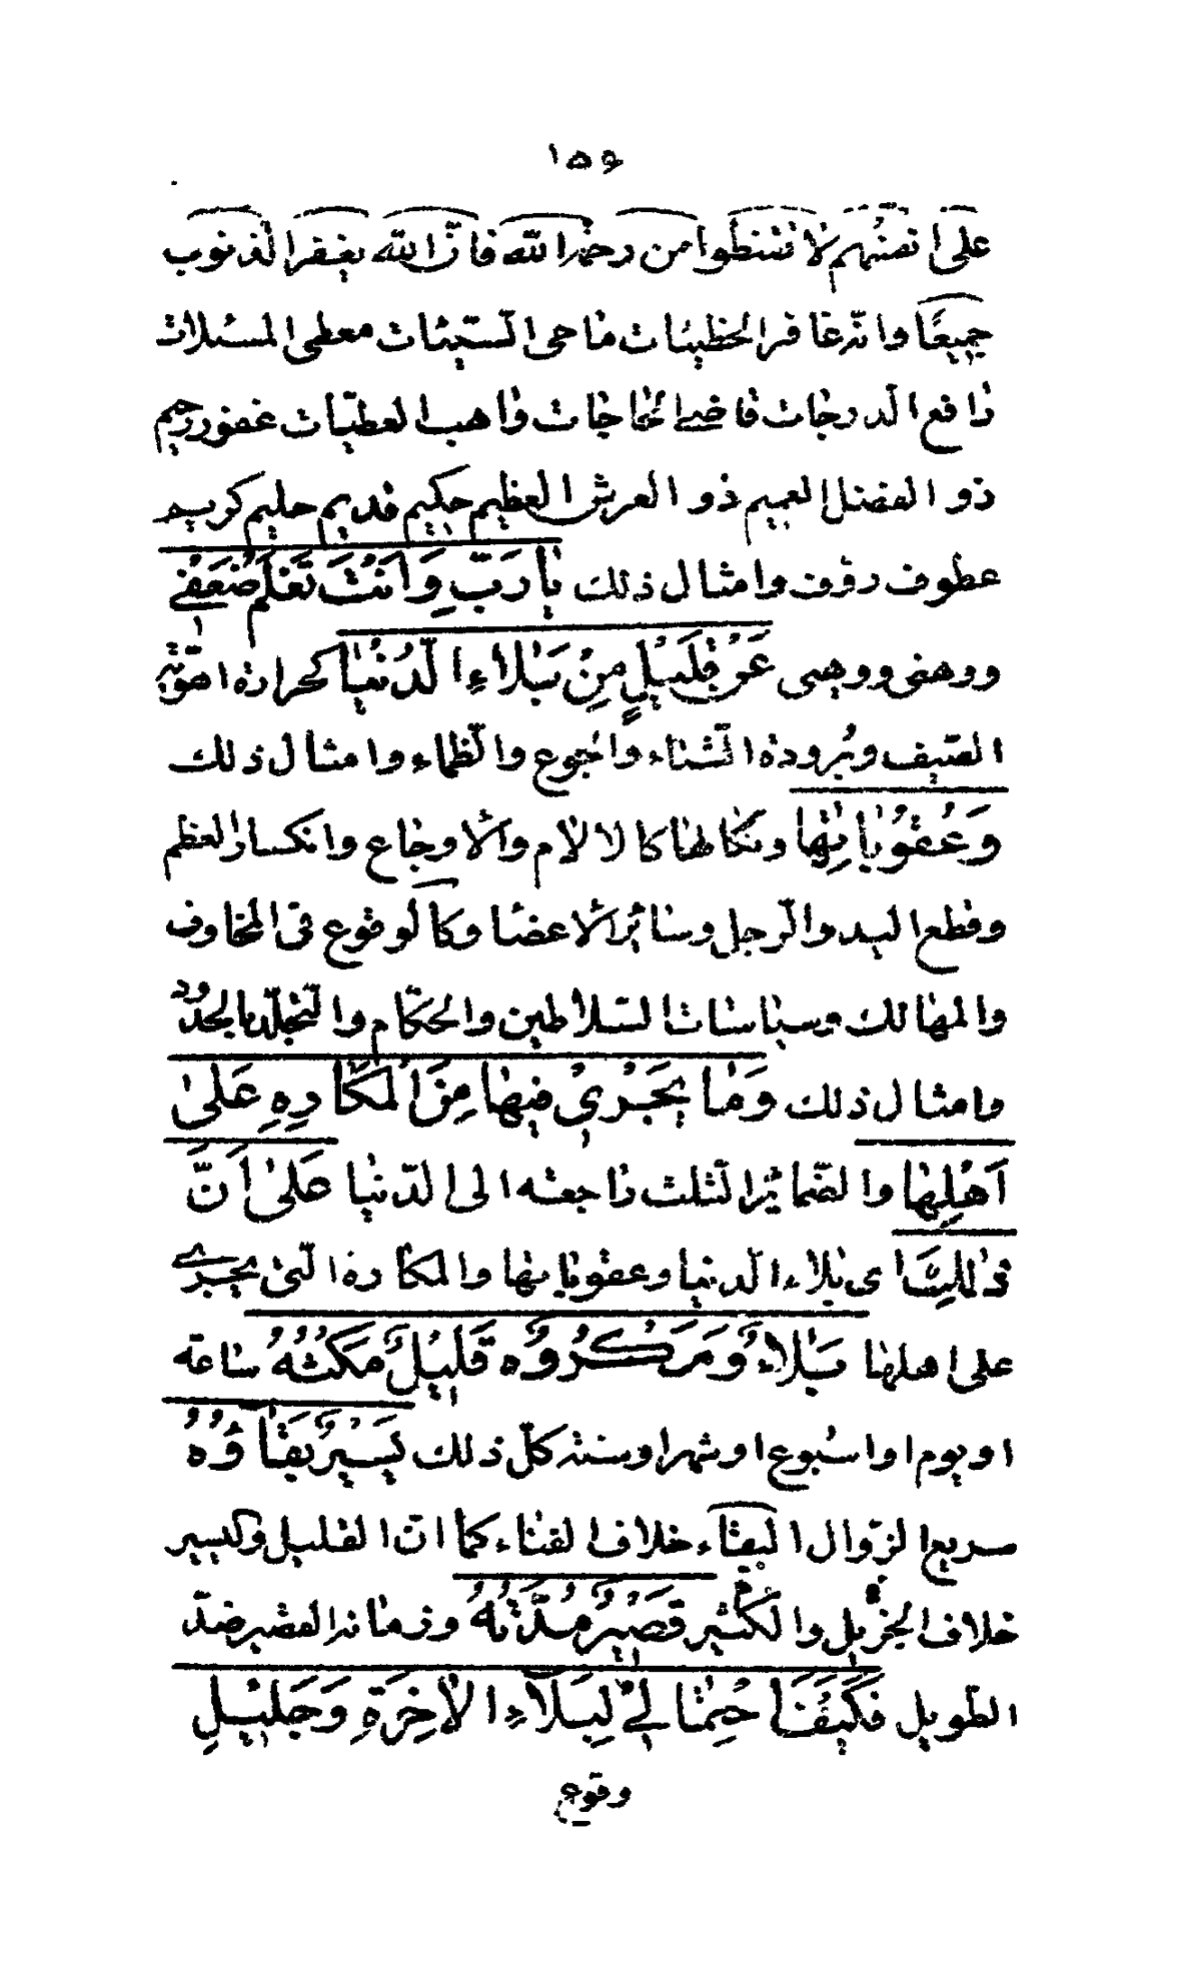 ۱۵۶
على انفسهم لا تقنطوا من رحمة الله فان الله يغفر الذنوب
جميعا وانه غافر الخطيئات ماحى السّيئات معطى المسئلات
رافع الدرجات قاضى الحاجات واهب العطيّات غفور رحيم
ذو الفضل العميم ذو العرش العظيم حكيم قديم حليم كريم
عطوف رؤف وامثال ذلك يٰا رَبِّ وَاَنْتَ تَعْلَمُ ضَعْفِي
ووهنى ووهيى عَنْ قَلٖيلٍ مِنْ بَلٰاءِ الدُّنْيٰا كحرارة اهوية
الصّيف وبُرودة الشّتاء والجوع والظّماء وامثال ذلك
وَعُقُوبٰاتِهٰا ونكالها كالالام والاوجاع وانكسار العظم
وقطع اليد والرّجل وسائر الاعضا وكالوقوع فى المخاوف
والمهالك وسياسات السّلاطين والحكّام والتّجلّد بالحدود
وامثال ذلك وَمٰا يَجْرٖي فيهٰا مِنَ الْمَكٰارِهِ عَلىٰ
اَهْلِهٰا والضّمائر الثلث راجعة الى الدّنيا عَلىٰ اَنَّ
ذٰلِكَ اى بلاء الدنيا وعقوباتها والمكاره الّتى يجرى
على اهلها بَلٰاءٌ وَمَكْرُوهٌ قَلٖيلٌ مَكْثُهُ ساعة
او يوم او اسبوع او شهر او سنة كلّ ذلك يَسٖيرٌ بَقٰاؤُهُ
سريع الزّوال البقاء خلاف الفناء كما انّ القليل وكيسير
خلاف الجزيل والكثير قَصٖيرٌ مُدَّتُهُ وزمانه القصير ضدّ
الطّويل فَكَيْفَ احْتِمٰالٖي لِبَلٰاءِ الْاٰخِرَةِ وَجَلٖيلِ
وقوع